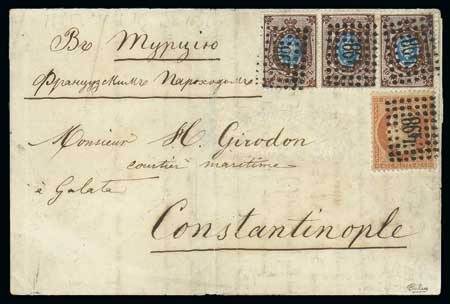 Въ Турцію
Французскимъ Пароходомъ
Monsieur H. Girodon
courtier maritime
à Galata
Constantinople